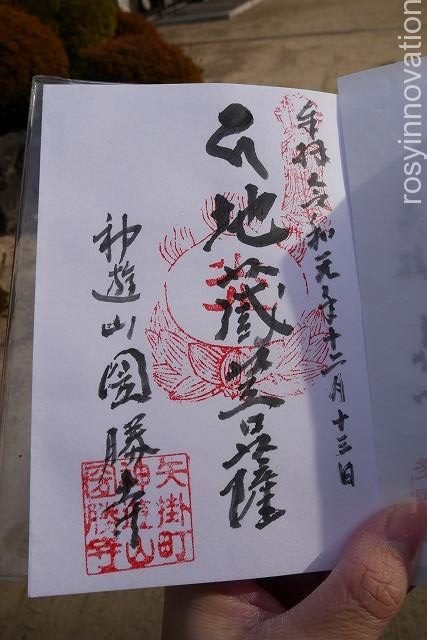 奉拝 令和元年十二月十三日
地蔵菩薩
神遊山圀勝寺
矢掛町
神遊山
圀勝寺
rosyinnovation